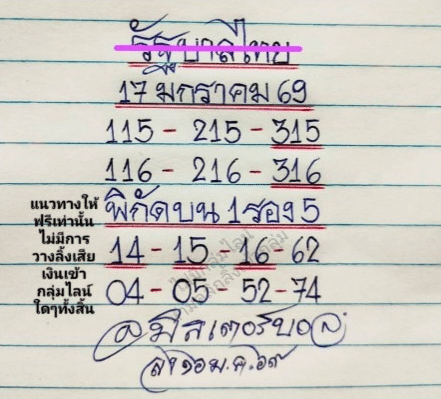 รัฐบาลไทย
17 มกราคม 69
115 - 215 - 315
116 - 216 - 316
พิกัดบน 1 รอง 5
14 - 15 - 16 - 62
04 - 05 - 52 - 74
แนวทางให้
ฟรีเท่านั้น
ไม่มีการ
วางลิ้งเสีย
เงินเข้า
กลุ่มไลน์
ใดๆทั้งสิ้น
มิสเตอร์บอล